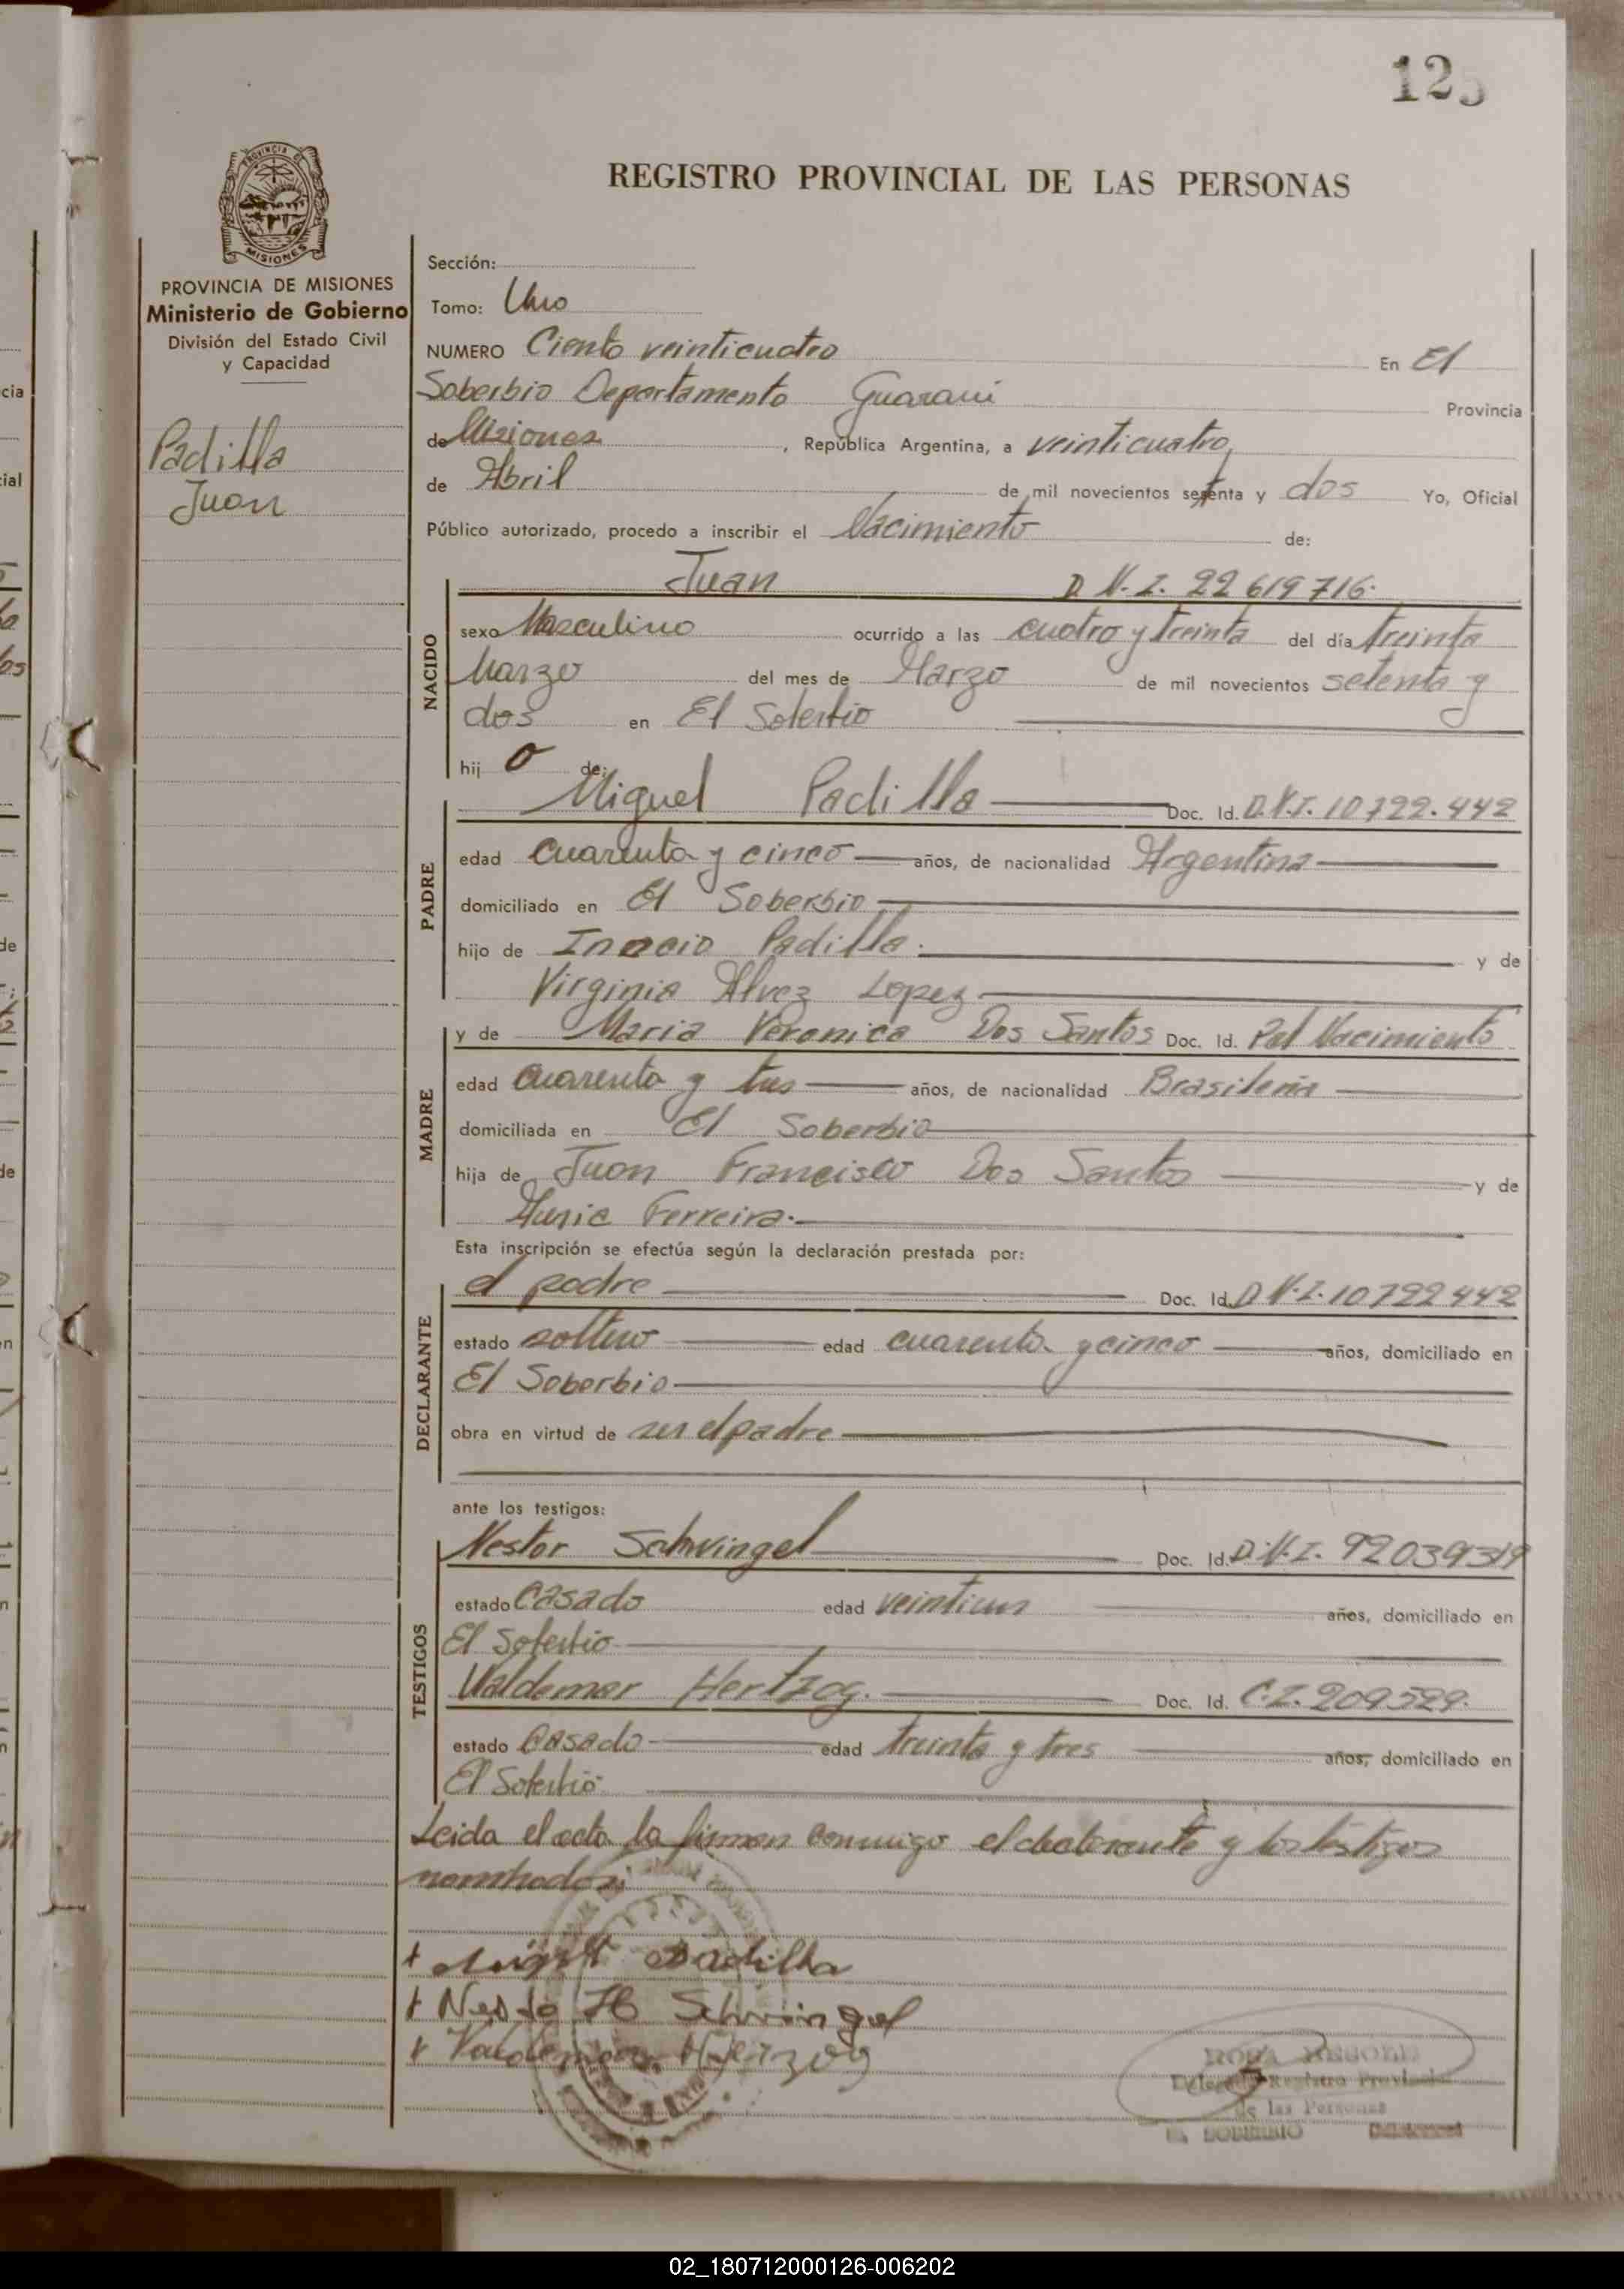 125
REGISTRO PROVINCIAL DE LAS PERSONAS
PROVINCIA DE MISIONES
Ministerio de Gobierno
División del Estado Civil
y Capacidad
Padilla
Juan
Sección:
Tomo: Uno
NUMERO Ciento veinticuatro En El
Soberbio Departamento Guarani Provincia
de Misiones, República Argentina, a veinticuatro
de Abril de mil novecientos setenta y dos Yo, Oficial
Público autorizado, procedo a inscribir el Nacimiento de:
NACIDO
Juan D.N.I. 22 619 716.
sexo Masculino ocurrido a las cuatro y treinta del día treinta
Marzo del mes de Marzo de mil novecientos setenta y
dos en El Soberbio
hij o de:
PADRE
Miguel Padilla Doc. Id. D.N.I. 10722.442
edad cuarenta y cinco años, de nacionalidad Argentina
domiciliado en El Soberbio
hijo de Inacio Padilla. y de
Virginia Alvez Lopez
MADRE
y de Maria Veronica Dos Santos Doc. Id. Nacimiento
edad cuarenta y tres años, de nacionalidad Brasileña
domiciliada en El Soberbio
hija de Juan Francisco Dos Santos y de
Maria Ferreira.
Esta inscripción se efectúa según la declaración prestada por:
DECLARANTE
el padre Doc. Id. D.N.I. 10722442
estado soltero edad cuarenta y cinco años, domiciliado en
El Soberbio
obra en virtud de ser el padre
ante los testigos:
TESTIGOS
Nestor Schvingel Doc. Id. D.N.I. 92039319
estado Casado edad veintiun años, domiciliado en
El Soberbio
Valdemar Hertzog. Doc. Id. C.I. 209529.
estado Casado edad treinta y tres años, domiciliado en
El Soberbio
Leida el acta la firman conmigo el declarante y los testigos
nombrados
+ Padilha
+ Nesto H Schwingel
+ Valdemar Herzog
Registro Provincial
de las Personas
EL SOBERBIO
02_180712000126-006202